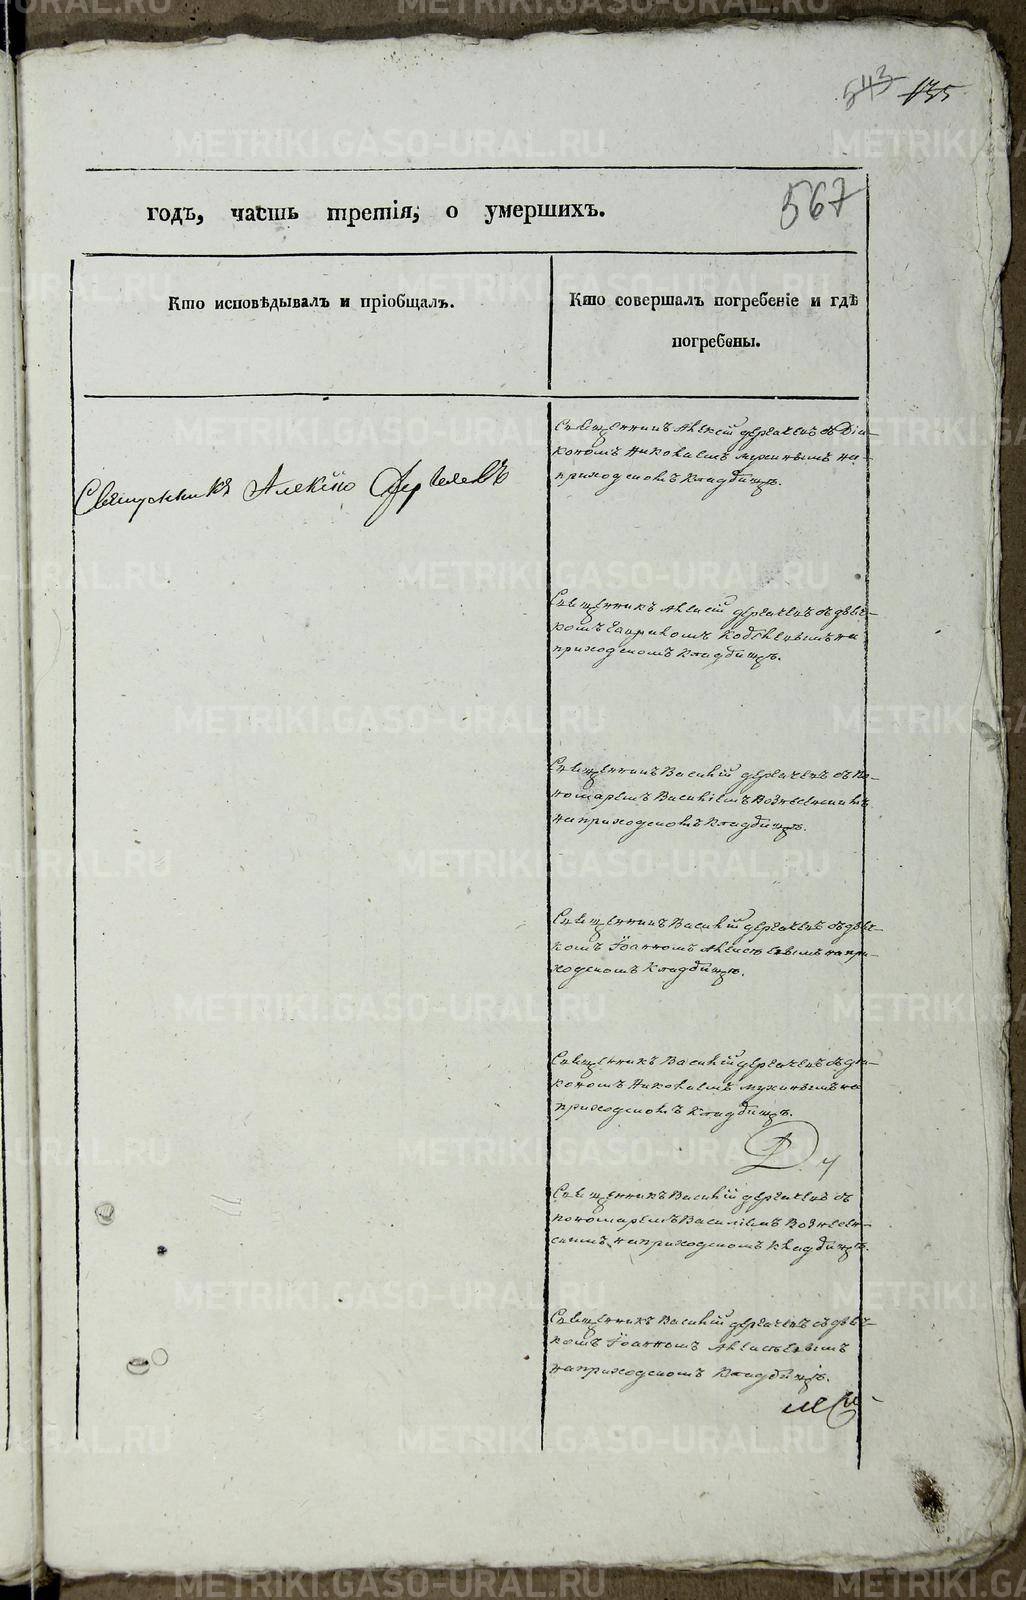 543 135
567
годъ, часть третія, о умершихъ.
Кто исповѣдывалъ и пріобщалъ.
Кто совершалъ погребеніе и гдѣ
погребены.
Священникъ Алексій Дергачевъ съ Діа-
кономъ Николаемъ Мухинымъ на
приходскомъ кладбищѣ.
Священникъ
Священникъ Алексій Дергачевъ съ дьяч-
комъ на
приходскомъ кладбищѣ.
Священникъ Василій Дергачевъ съ по-
номаремъ Василіемъ Вознесенскимъ
на приходскомъ кладбищѣ.
Священникъ Василій Дергачевъ съ дьяч-
комъ Іоанномъ на при-
ходскомъ кладбищѣ.
Священникъ Василій Дергачевъ съ діа-
кономъ Николаемъ Мухинымъ на
приходскомъ кладбищѣ.
Священникъ Василій Дергачевъ съ
пономаремъ Василіемъ Вознесен-
скимъ на приходскомъ кладбищѣ.
Священникъ Василій Дергачевъ съ дьяч-
комъ Іоанномъ
на приходскомъ кладбищѣ.
METRIKI.GASO-URAL.RU